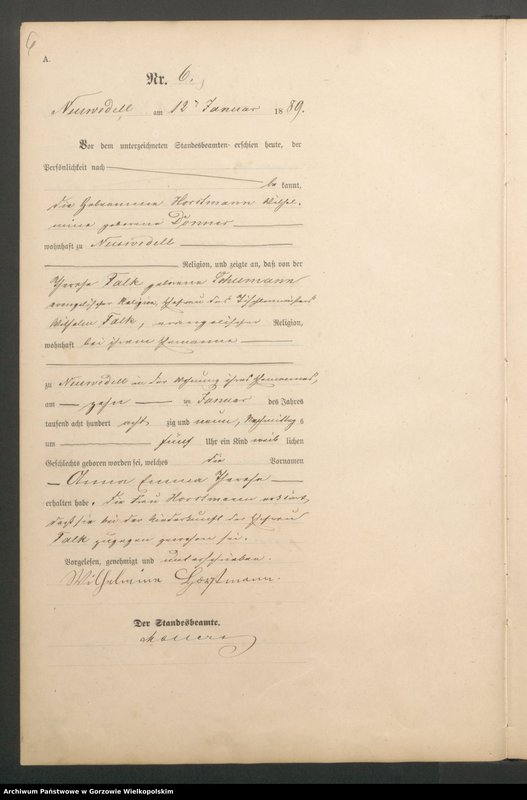 6
A.
Nr. 6.
Neuwedell am 12ten Januar 1889.
Vor dem unterzeichneten Standesbeamten erschien heute, der
Persönlichkeit nach
be kannt,
die Hebeamme Horstmann Wilhel-
mine geborene Donner
wohnhaft zu Neuwedell
Religion, und zeigte an, daß von der
Therese Falk geborene Schumann
evangelischer Religion, Ehefrau des Tischlermeisters
Wilhelm Falk, evangelischer Religion,
wohnhaft bei ihrem Ehemanne
zu Neuwedell in der Wohnung ihres Ehemannes,
am zehn ten Januar des Jahres
tausend acht hundert acht zig und neun, Nachmittags
um fünf Uhr ein Kind weib lichen
Geschlechts geboren worden sei, welches die Vornamen
Anna Emma Therese
erhalten habe. Die Frau Horstmann erklärt,
daß sie bei der Niederkunft der Ehefrau
Falk zugegen gewesen sei.
Vorgelesen, genehmigt und unterschrieben.
Wilhelmine Horstmann.
Der Standesbeamte.
Archiwum Państwowe w Gorzowie Wielkopolskim